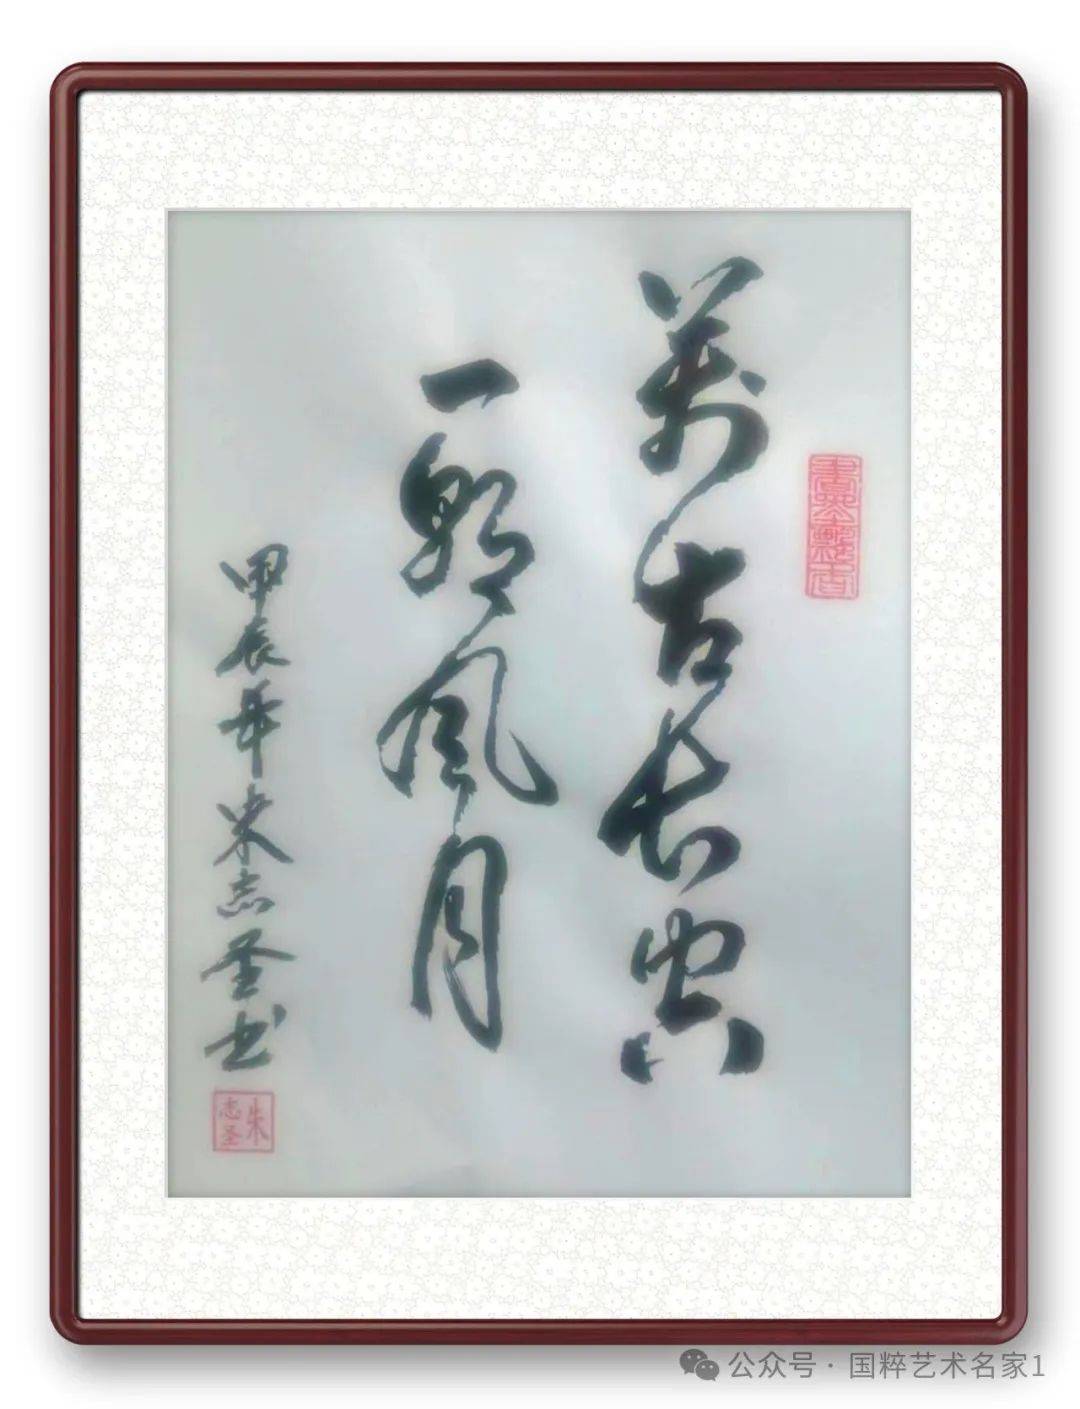 萬古长典
一朝风月
甲辰年朱志圣书
朱志圣
公众号 · 国粹艺术名家1